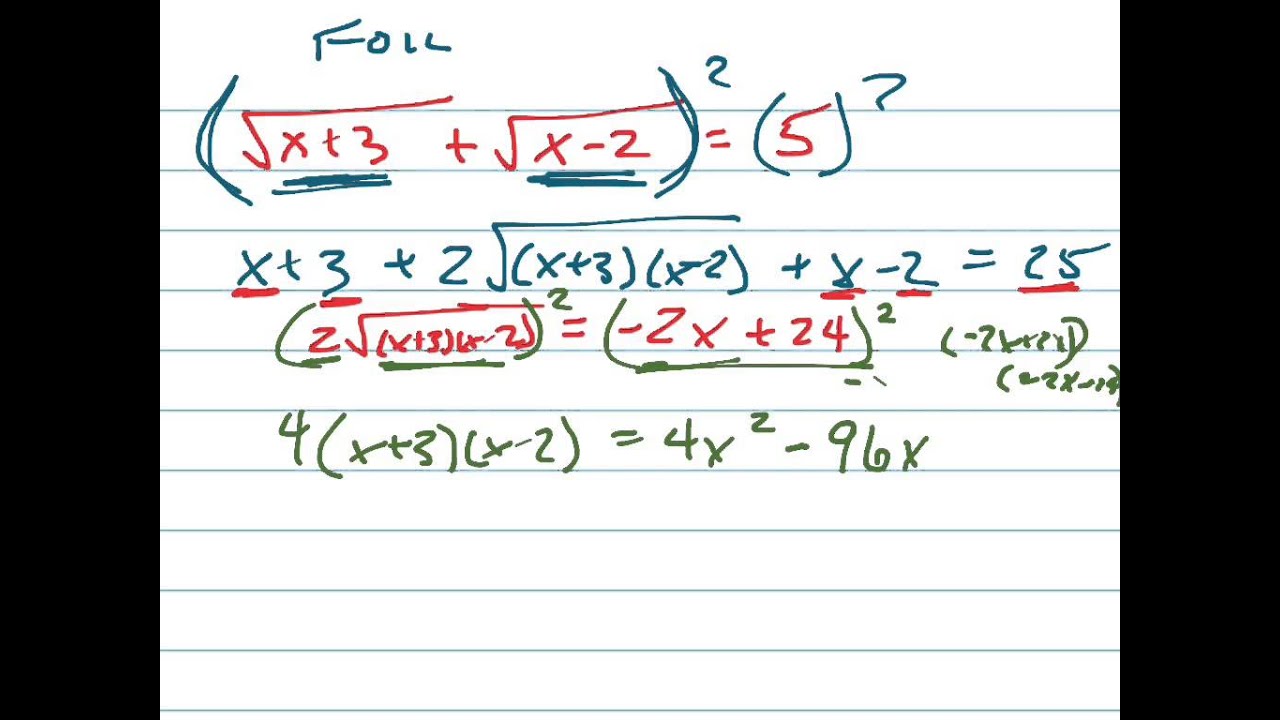 FOIL
(√(x+3) + √(x-2))² = (5)²
x+3 + 2√((x+3)(x-2)) + x-2 = 25
(2√((x+3)(x-2)))² = (-2x + 24)²
(-2x+24)
4(x+3)(x-2) = 4x² - 96x